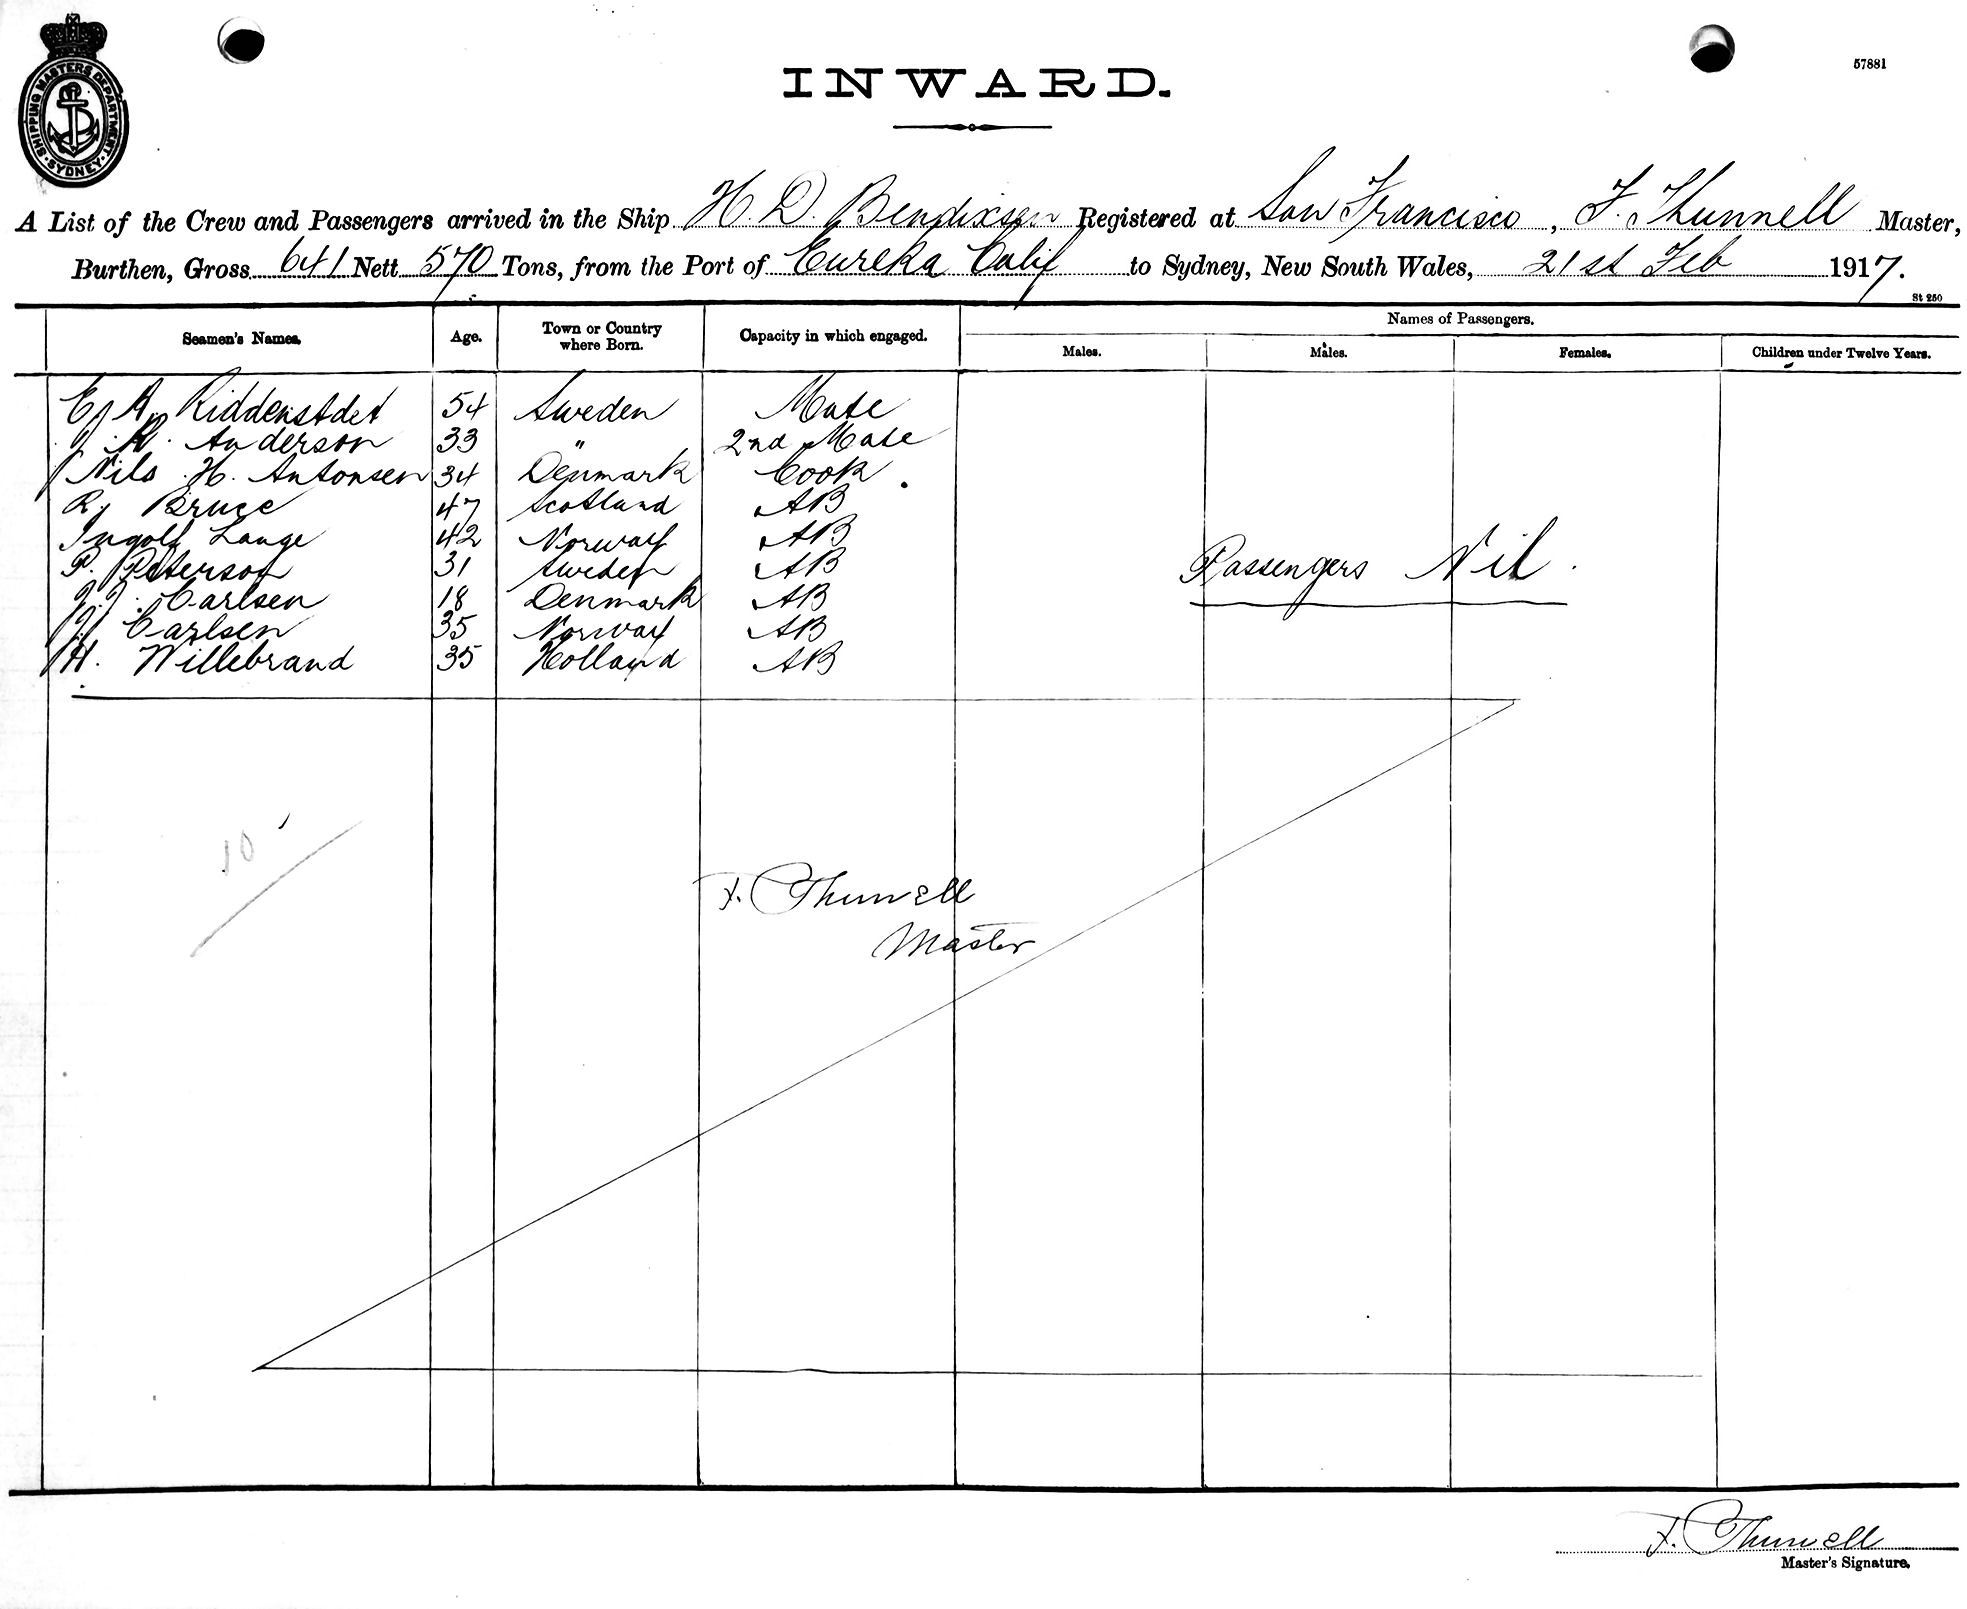 SHIPPING MASTERS DEPARTMENT · SYDNEY ·
57881
INWARD.
A List of the Crew and Passengers arrived in the Ship H. D. Bendixsen Registered at San Francisco, F. Thunnell Master,
Burthen, Gross 641 Nett 570 Tons, from the Port of Eureka Calif to Sydney, New South Wales, 21st Feb 1917.
St 250
Seamen's Names. Age. Town or Country where Born. Capacity in which engaged. Names of Passengers.
Males. Males. Females. Children under Twelve Years.
Riddenstdet 54 Sweden Mate
Anderson 33 " 2nd Mate
Nils H. Antonsen 34 Denmark Cook
R, Bruce 47 Scotland AB
Ingolf Lange 42 Norway AB
P. Peterson 31 Sweden AB
Carlsen 18 Denmark AB
Carlsen 35 Norway AB
H. Willebrand 35 Holland AB
Passengers Nil.
10
F. Thunnell
Master
F. Thunnell
Master's Signature.